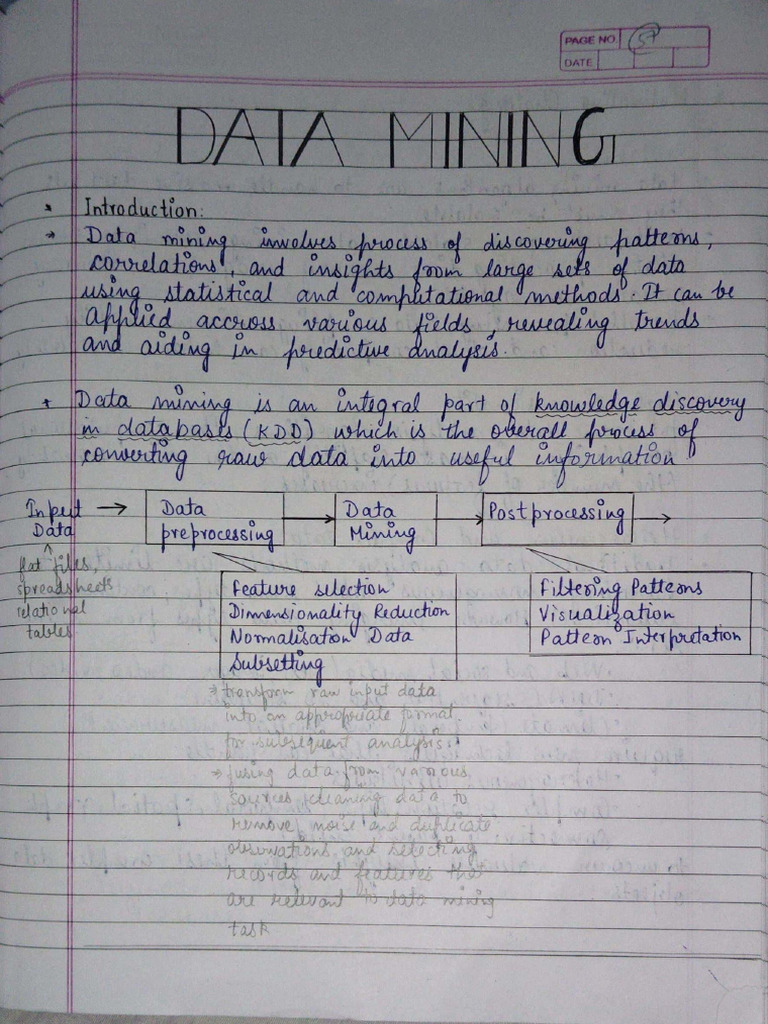 PAGE NO. 57
DATE
DATA MINING
* Introduction:
→ Data mining involves process of discovering patterns,
correlations, and insights from large sets of data
using statistical and computational methods. It can be
applied accross various fields, revealing trends
and aiding in predictive analysis.
* Data mining is an integral part of knowledge discovery
in databases (KDD) which is the overall process of
converting raw data into useful information
Input Data →
Data preprocessing →
Data Mining →
Postprocessing →
flat files,
spreadsheets
relational
tables
Feature selection
Dimensionality Reduction
Normalisation Data
Subsetting
Filtering Patterns
Visualization
Pattern Interpretation
→ transform raw input data
into an appropriate format
for subsequent analysis.
→ fusing data from various
sources, cleaning data to
remove noise and duplicate
observations and selecting
records and features that
are relevant to data mining
task